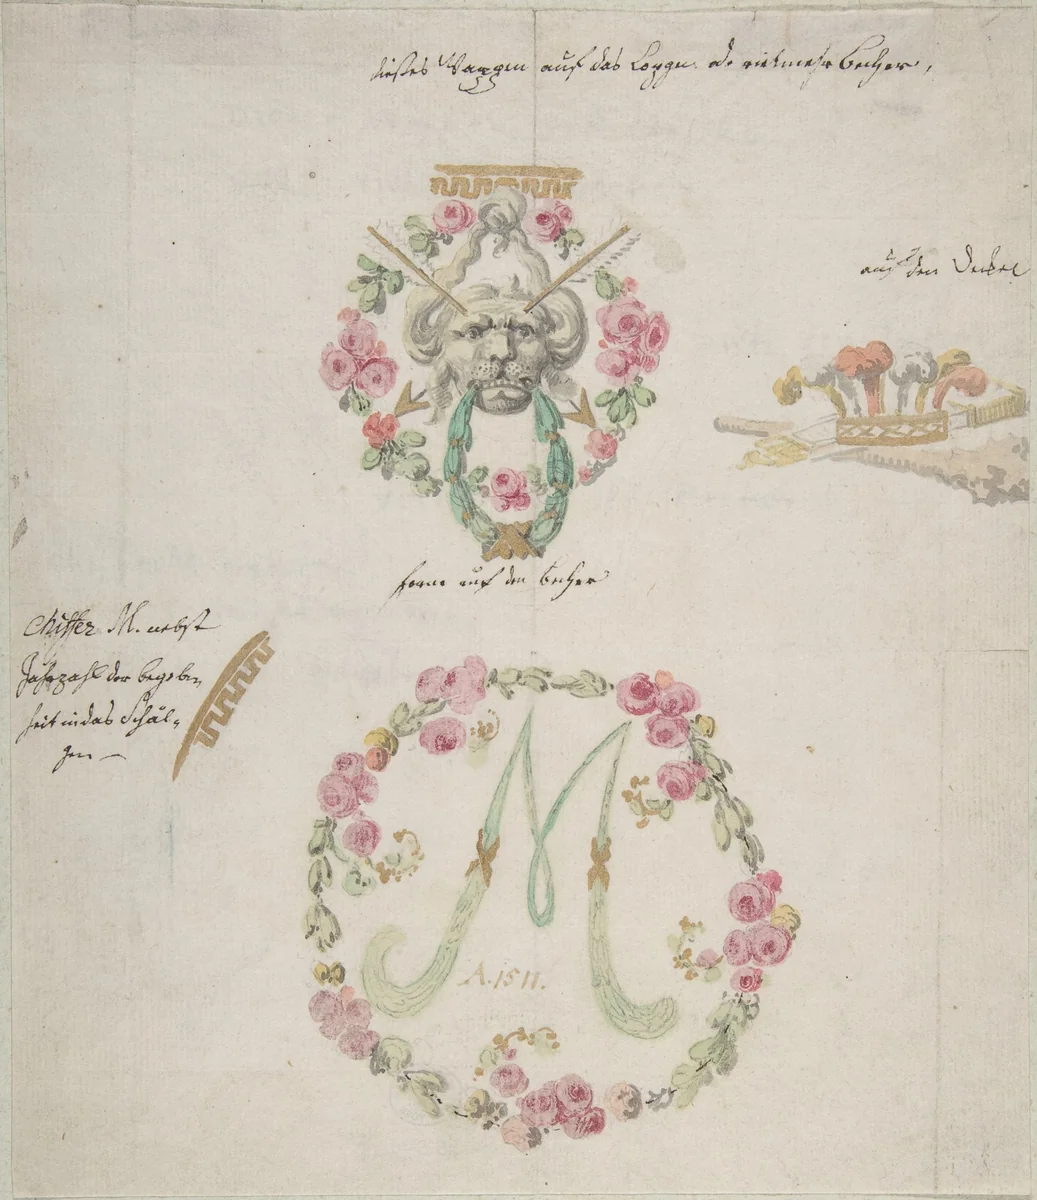 dießes Wappen auf das Coppgen od. vielmehr becher,
auf den Deckel
forne auf den becher
Chiffer M. nebst
Jahrzahl der begeben
heit in das Schäl-
gen —
A. 1511.